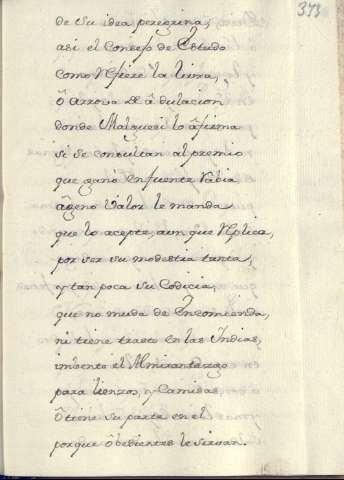 373
de su idea peregrina,
asi el Consejo de Estado
como refiere la
ô arroba de âdulacion
donde Malquesi lo âfirma
si se consultan al premio
que gano en fuente Rabia
âgeno valor le manda
que lo acepte, aun que replica,
por ser su modestia tanta,
y tan poca su Codicia,
que no muda de Encomienda,
ni tiene trato en las Indias,
imbento el Almirantazgo
para lienzos, y Camisas
ô tiene su parte en el
porque ôbedientes le sirvan.